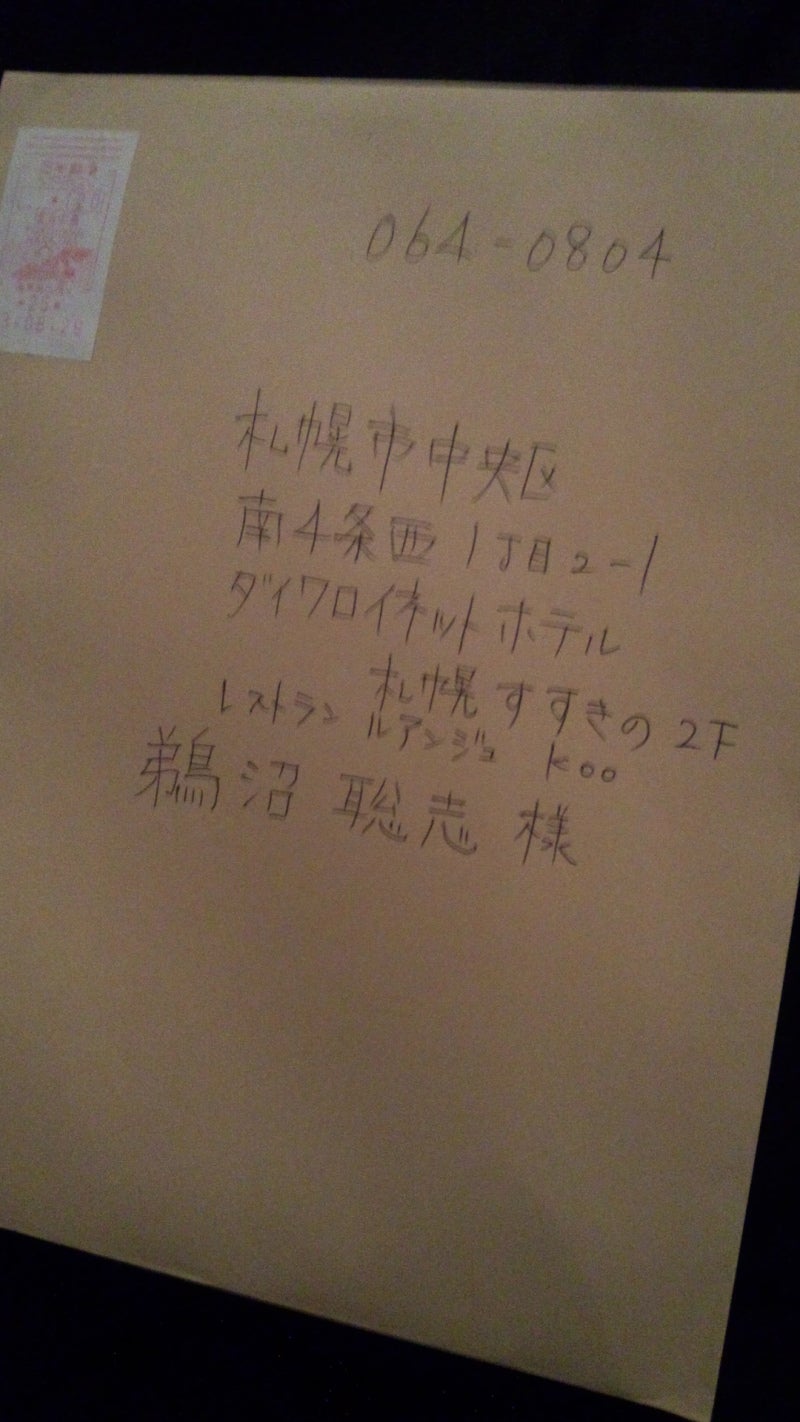 064-0804
札幌市中央区
南4条西1丁目2-1
ダイワロイネットホテル
札幌すすきの2F
レストラン ルアンジェ Koo
鵜沼聡志様